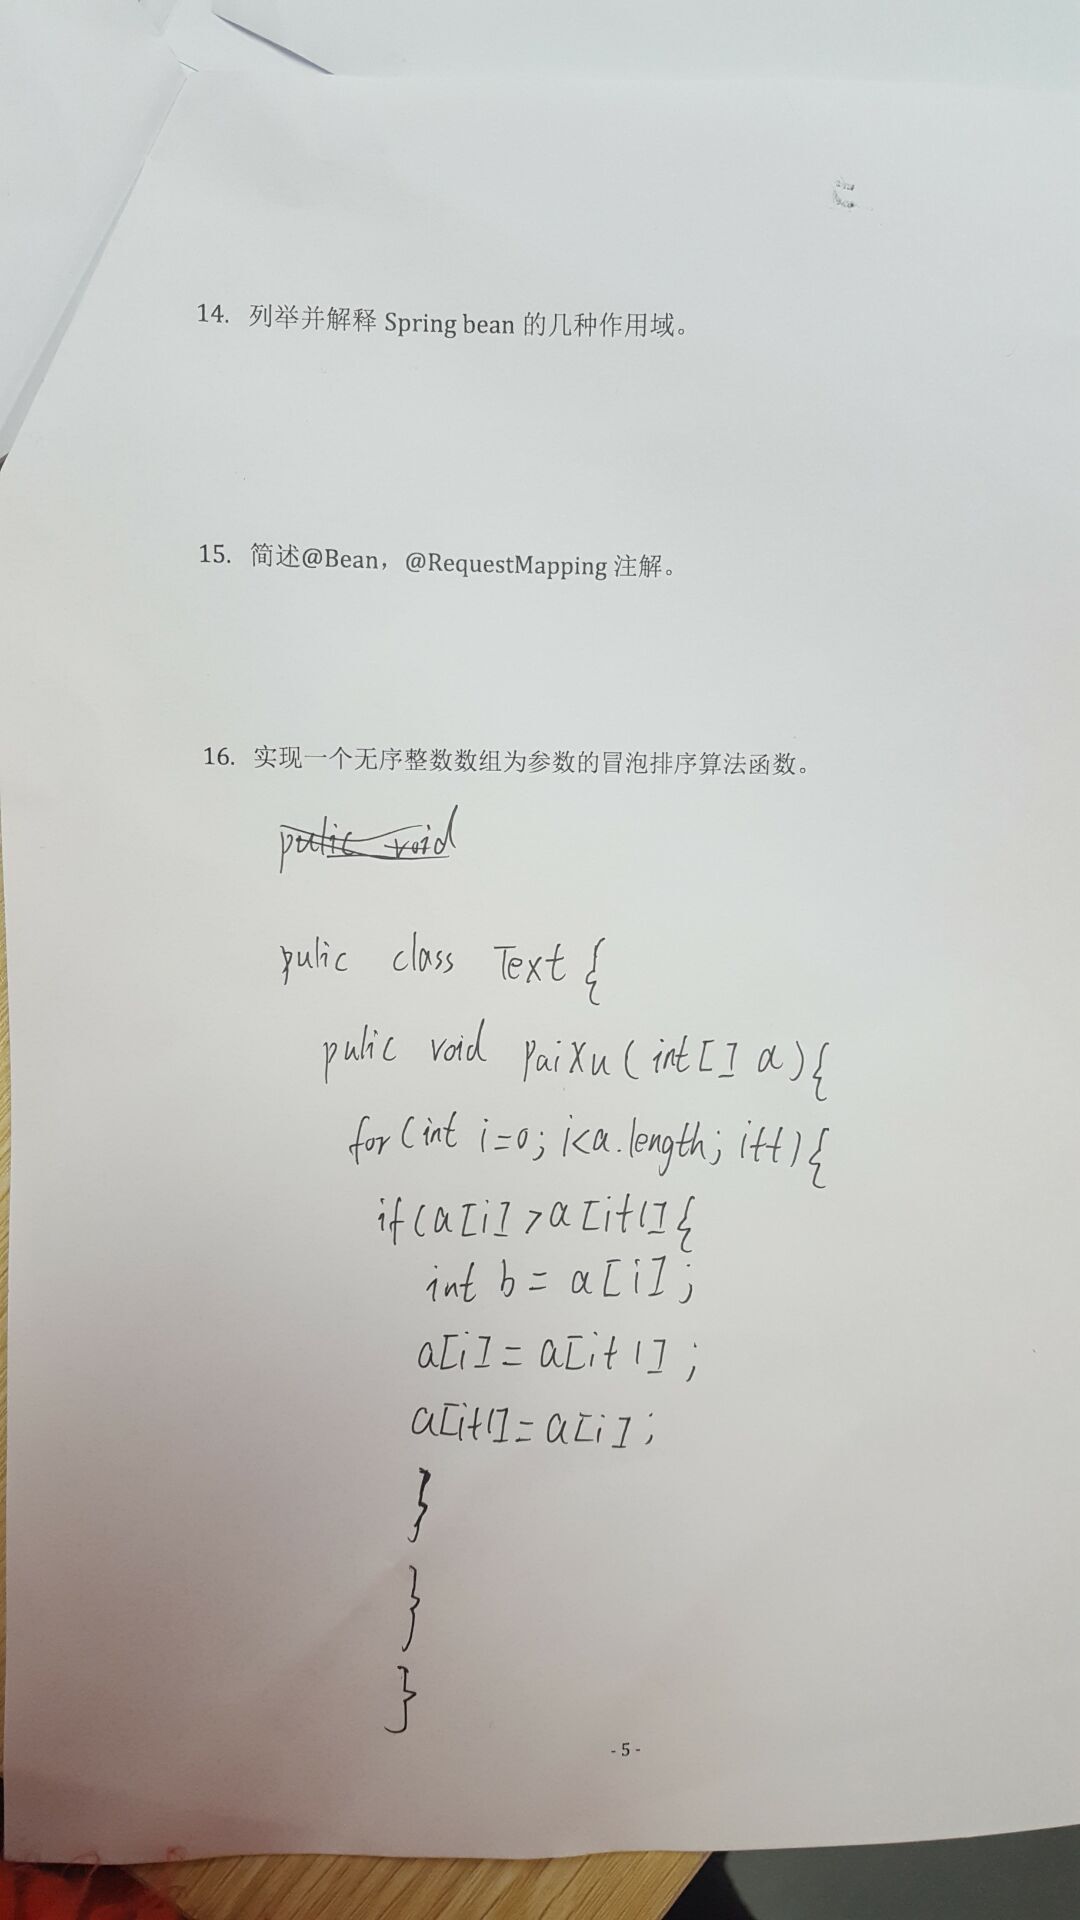 14. 列举并解释 Spring bean 的几种作用域。
15. 简述@Bean，@RequestMapping 注解。
16. 实现一个无序整数数组为参数的冒泡排序算法函数。
pulic void
pulic class Text {
pulic void paiXu ( int [ ] a ) {
for ( int i=0; i<a.length; i++ ) {
if ( a [i] > a [i+1] {
int b = a [i] ;
a[i] = a[i+1] ;
a[i+1] = a[i] ;
}
}
}
- 5 -